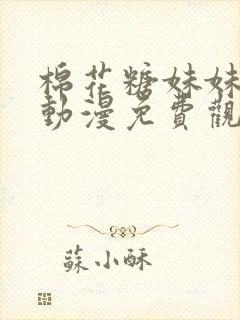 棉花糖妹妹
動漫免費觀
蘇小酥